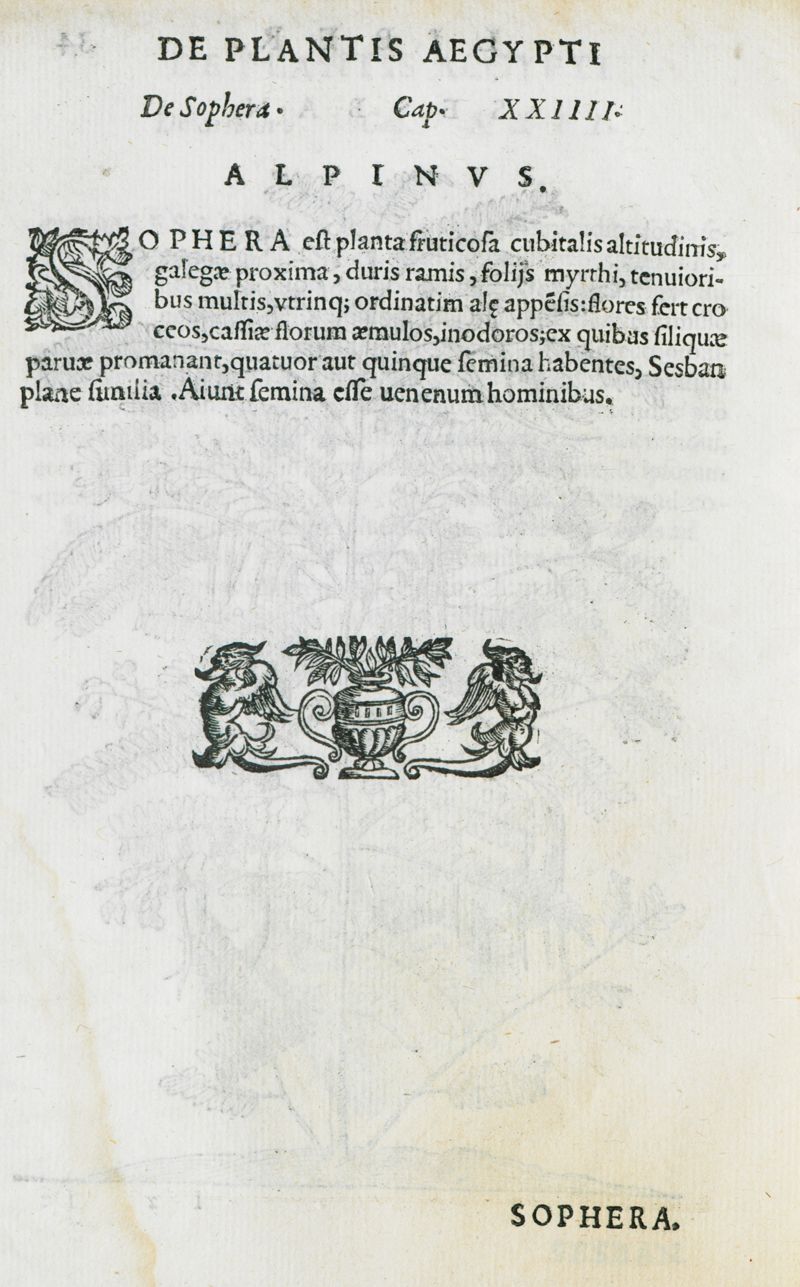 DE PLANTIS AEGYPTI
De Sophera. Cap. XXIIII.
ALPINVS.
SOPHERA eſt planta fruticoſa cubitalis altitudinis,
galegæ proxima, duris ramis, folijs myrthi, tenuiori-
bus multis, vtrinq; ordinatim alę appēſis: flores fert cro
ceos, caſſiæ florum æmulos, inodoros; ex quibus ſiliquæ
paruæ promanant, quatuor aut quinque ſemina habentes, Sesban
plane ſimilia. Aiunt ſemina eſſe uenenum hominibus.
SOPHERA.